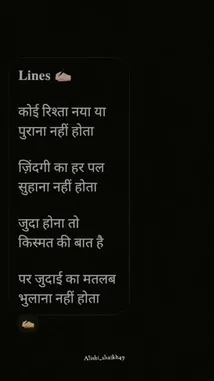 Lines ✍🏼
कोई रिश्ता नया या
पुराना नहीं होता
ज़िंदगी का हर पल
सुहाना नहीं होता
जुदा होना तो
किस्मत की बात है
पर जुदाई का मतलब
भुलाना नहीं होता
✍🏼
Alishi_shaikh49